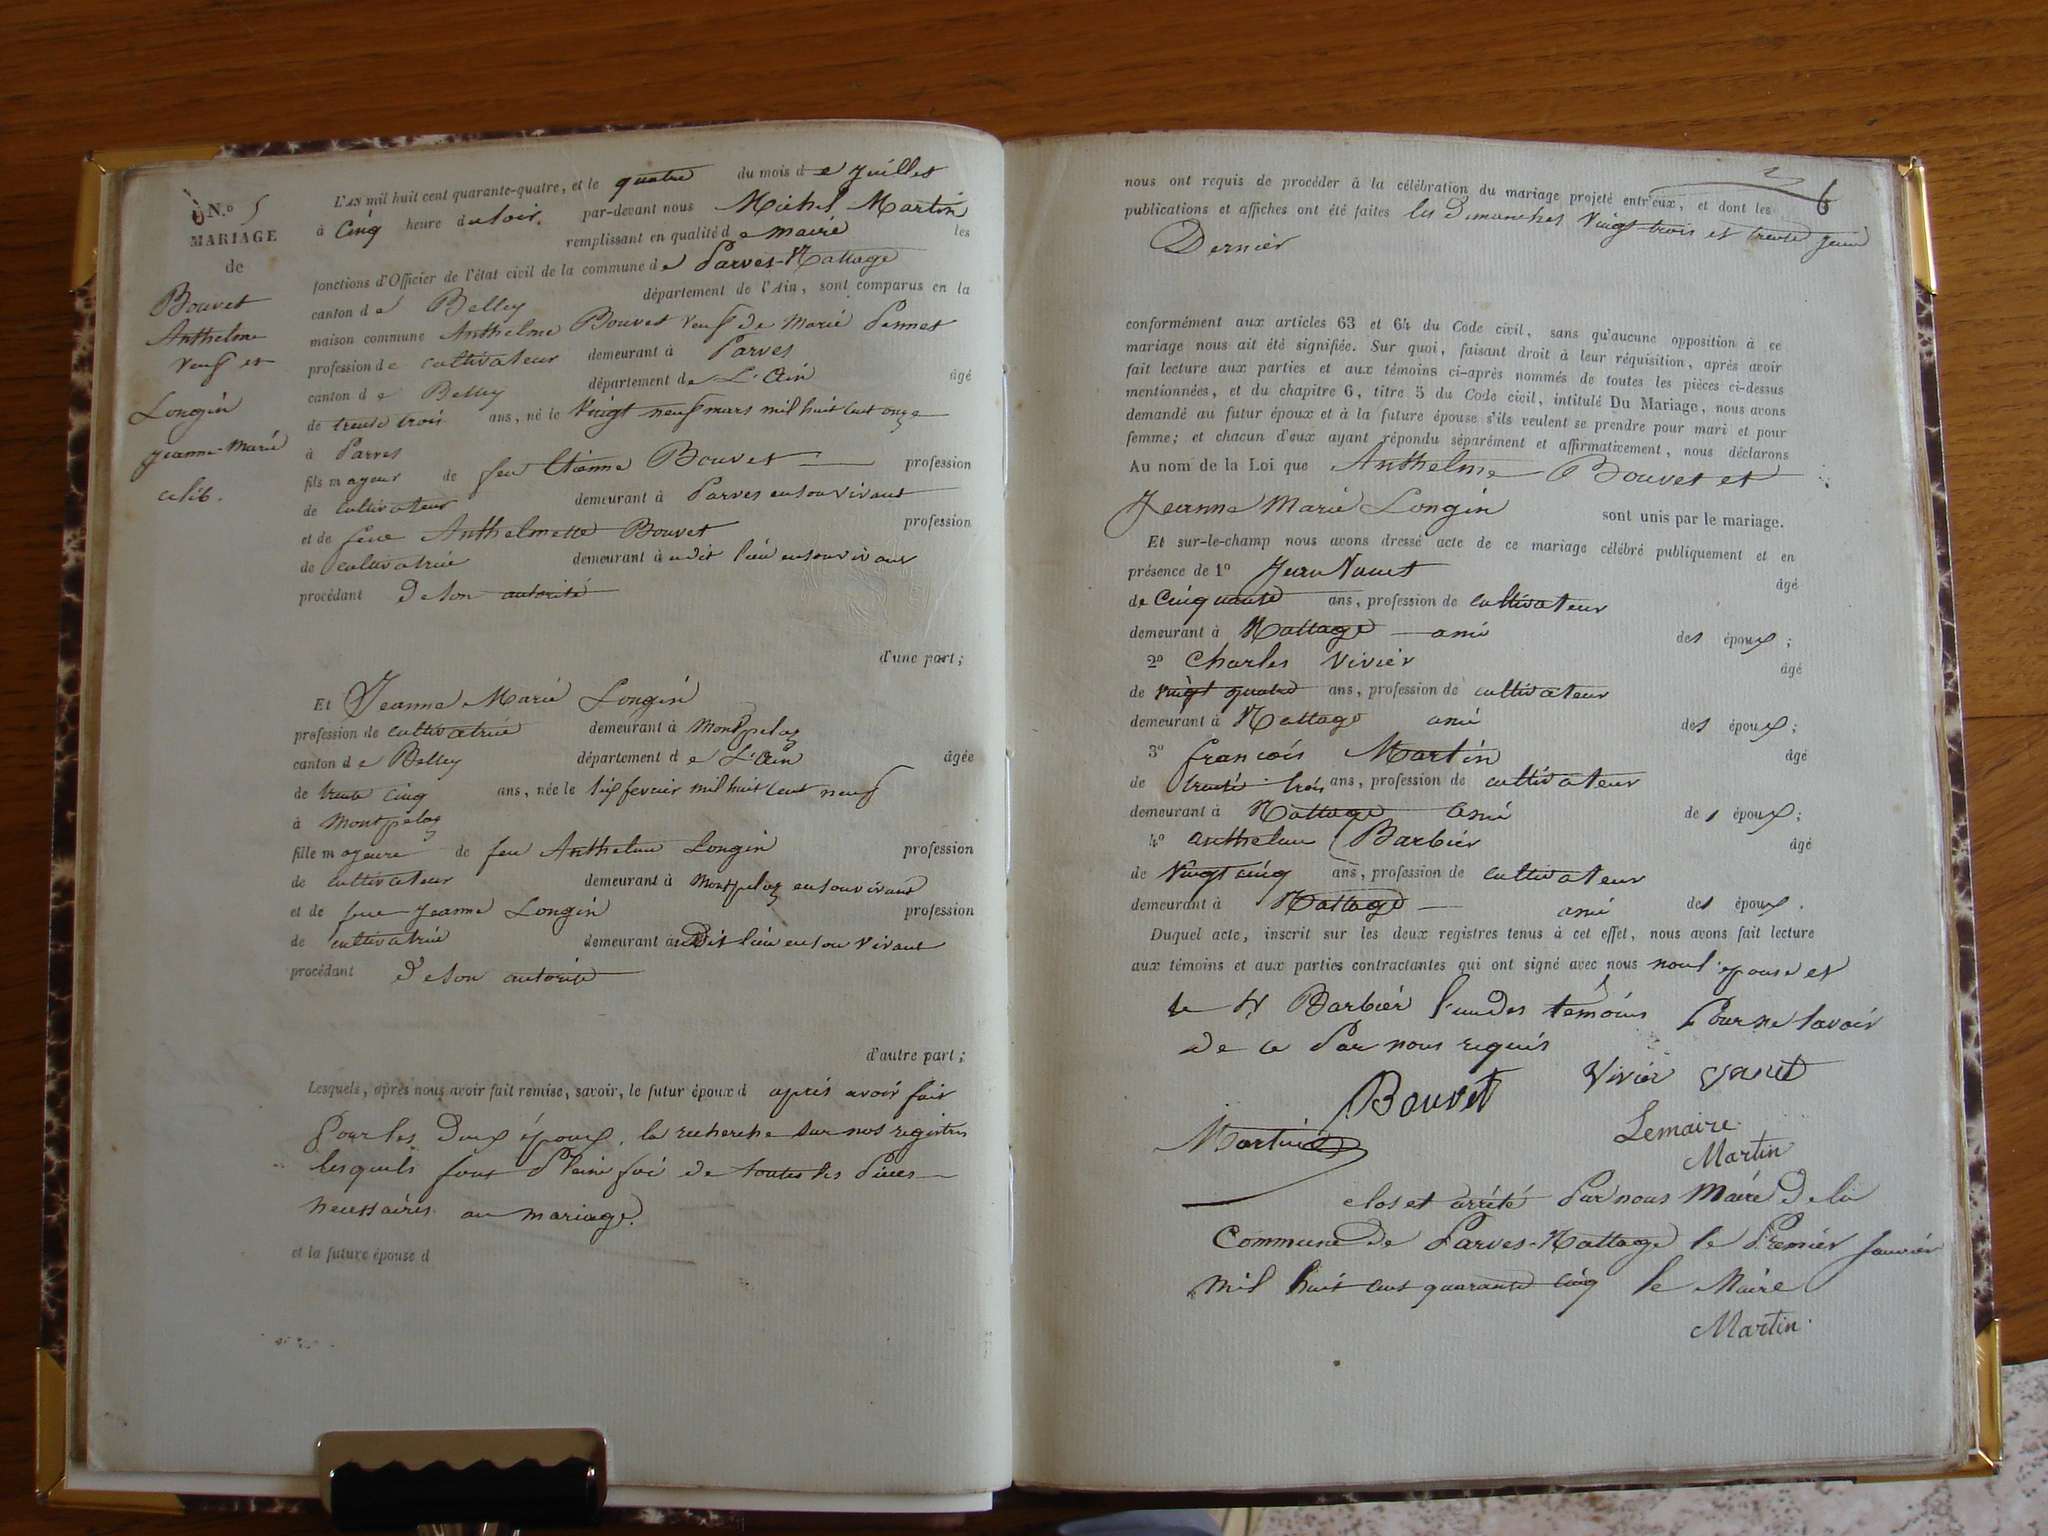 N.o 5
MARIAGE
de
Bouvet
Anthelme
veuf et
Longin
jeanne-Marie
célib.
L'AN mil huit cent quarante-quatre, et le quatre du mois de juillet
à Cinq heure du soir. par-devant nous Michel Martin
remplissant en qualité de maire les
fonctions d'Officier de l'état civil de la commune de Parves-Nattage
canton de Belley département de l'Ain, sont comparus en la
maison commune Anthelme Bouvet veuf de Marie Pennet
profession de cultivateur demeurant à Parves
canton de Belley département de L'Ain âgé
de trente trois ans, né le vingt neuf mars mil huit cent onze
à Parves
fils majeur de feu Etienne Bouvet profession
de cultivateur demeurant à Parves en son vivant
et de feue Anthelmette Bouvet profession
de cultivatrice demeurant à udit lieu en son vivant
procédant de son autorité
d'une part;
Et Jeanne Marie Longin
profession de cultivatrice demeurant à Montpelaz
canton de Belley département de L'Ain âgée
de trente cinq ans, née le six fevrier mil huit cent neuf
à Montpelaz
fille majeure de feu Anthelme Longin profession
de cultivateur demeurant à Montpelaz en son vivant
et de feue Jeanne Longin profession
de cultivatrice demeurant audit lieu en son vivant
procédant de son autorité
d'autre part;
Lesquels, après nous avoir fait remise, savoir, le futur époux d après avoir fait
Pour les Deux époux, la recherche sur nos registres
lesquels font Pleine foi de toutes les Pièces
necessaires au mariage.
et la future épouse d
6
nous ont requis de procéder à la célébration du mariage projeté entr'eux, et dont les
publications et affiches ont été faites les Dimanches vingt trois et trente juin
Dernier
conformément aux articles 63 et 64 du Code civil, sans qu'aucune opposition à ce
mariage nous ait été signifiée. Sur quoi, faisant droit à leur réquisition, après avoir
fait lecture aux parties et aux témoins ci-après nommés de toutes les pièces ci-dessus
mentionnées, et du chapitre 6, titre 5 du Code civil, intitulé Du Mariage, nous avons
demandé au futur époux et à la future épouse s'ils veulent se prendre pour mari et pour
femme; et chacun d'eux ayant répondu séparément et affirmativement, nous déclarons
Au nom de la Loi que Anthelme Bouvet et
Jeanne Marie Longin sont unis par le mariage.
Et sur-le-champ nous avons dressé acte de ce mariage célébré publiquement et en
présence de 1o Jean âgé
de Cinquante ans, profession de cultivateur
demeurant à Nattage ami des époux;
2o Charles Vivier âgé
de vingt quatre ans, profession de cultivateur
demeurant à Nattage ami des époux;
3o françois Martin âgé
de trente trois ans, profession de cultivateur
demeurant à Nattage ami des époux;
4o anthelme Barbier âgé
de vingt cinq ans, profession de cultivateur
demeurant à Nattage ami des époux.
Duquel acte, inscrit sur les deux registres tenus à cet effet, nous avons fait lecture
aux témoins et aux parties contractantes qui ont signé avec nous non l'epouse et
le Sr Barbier l'un des témoins Pour ne savoir
de ce Par nous requis
Bouvet Vivier
Martin Lemaire
Martin
clos et arrêté Par nous Maire de la
Commune de Parves-Nattage le Premier janvier
mil huit cent quarante cinq le Maire
Martin.